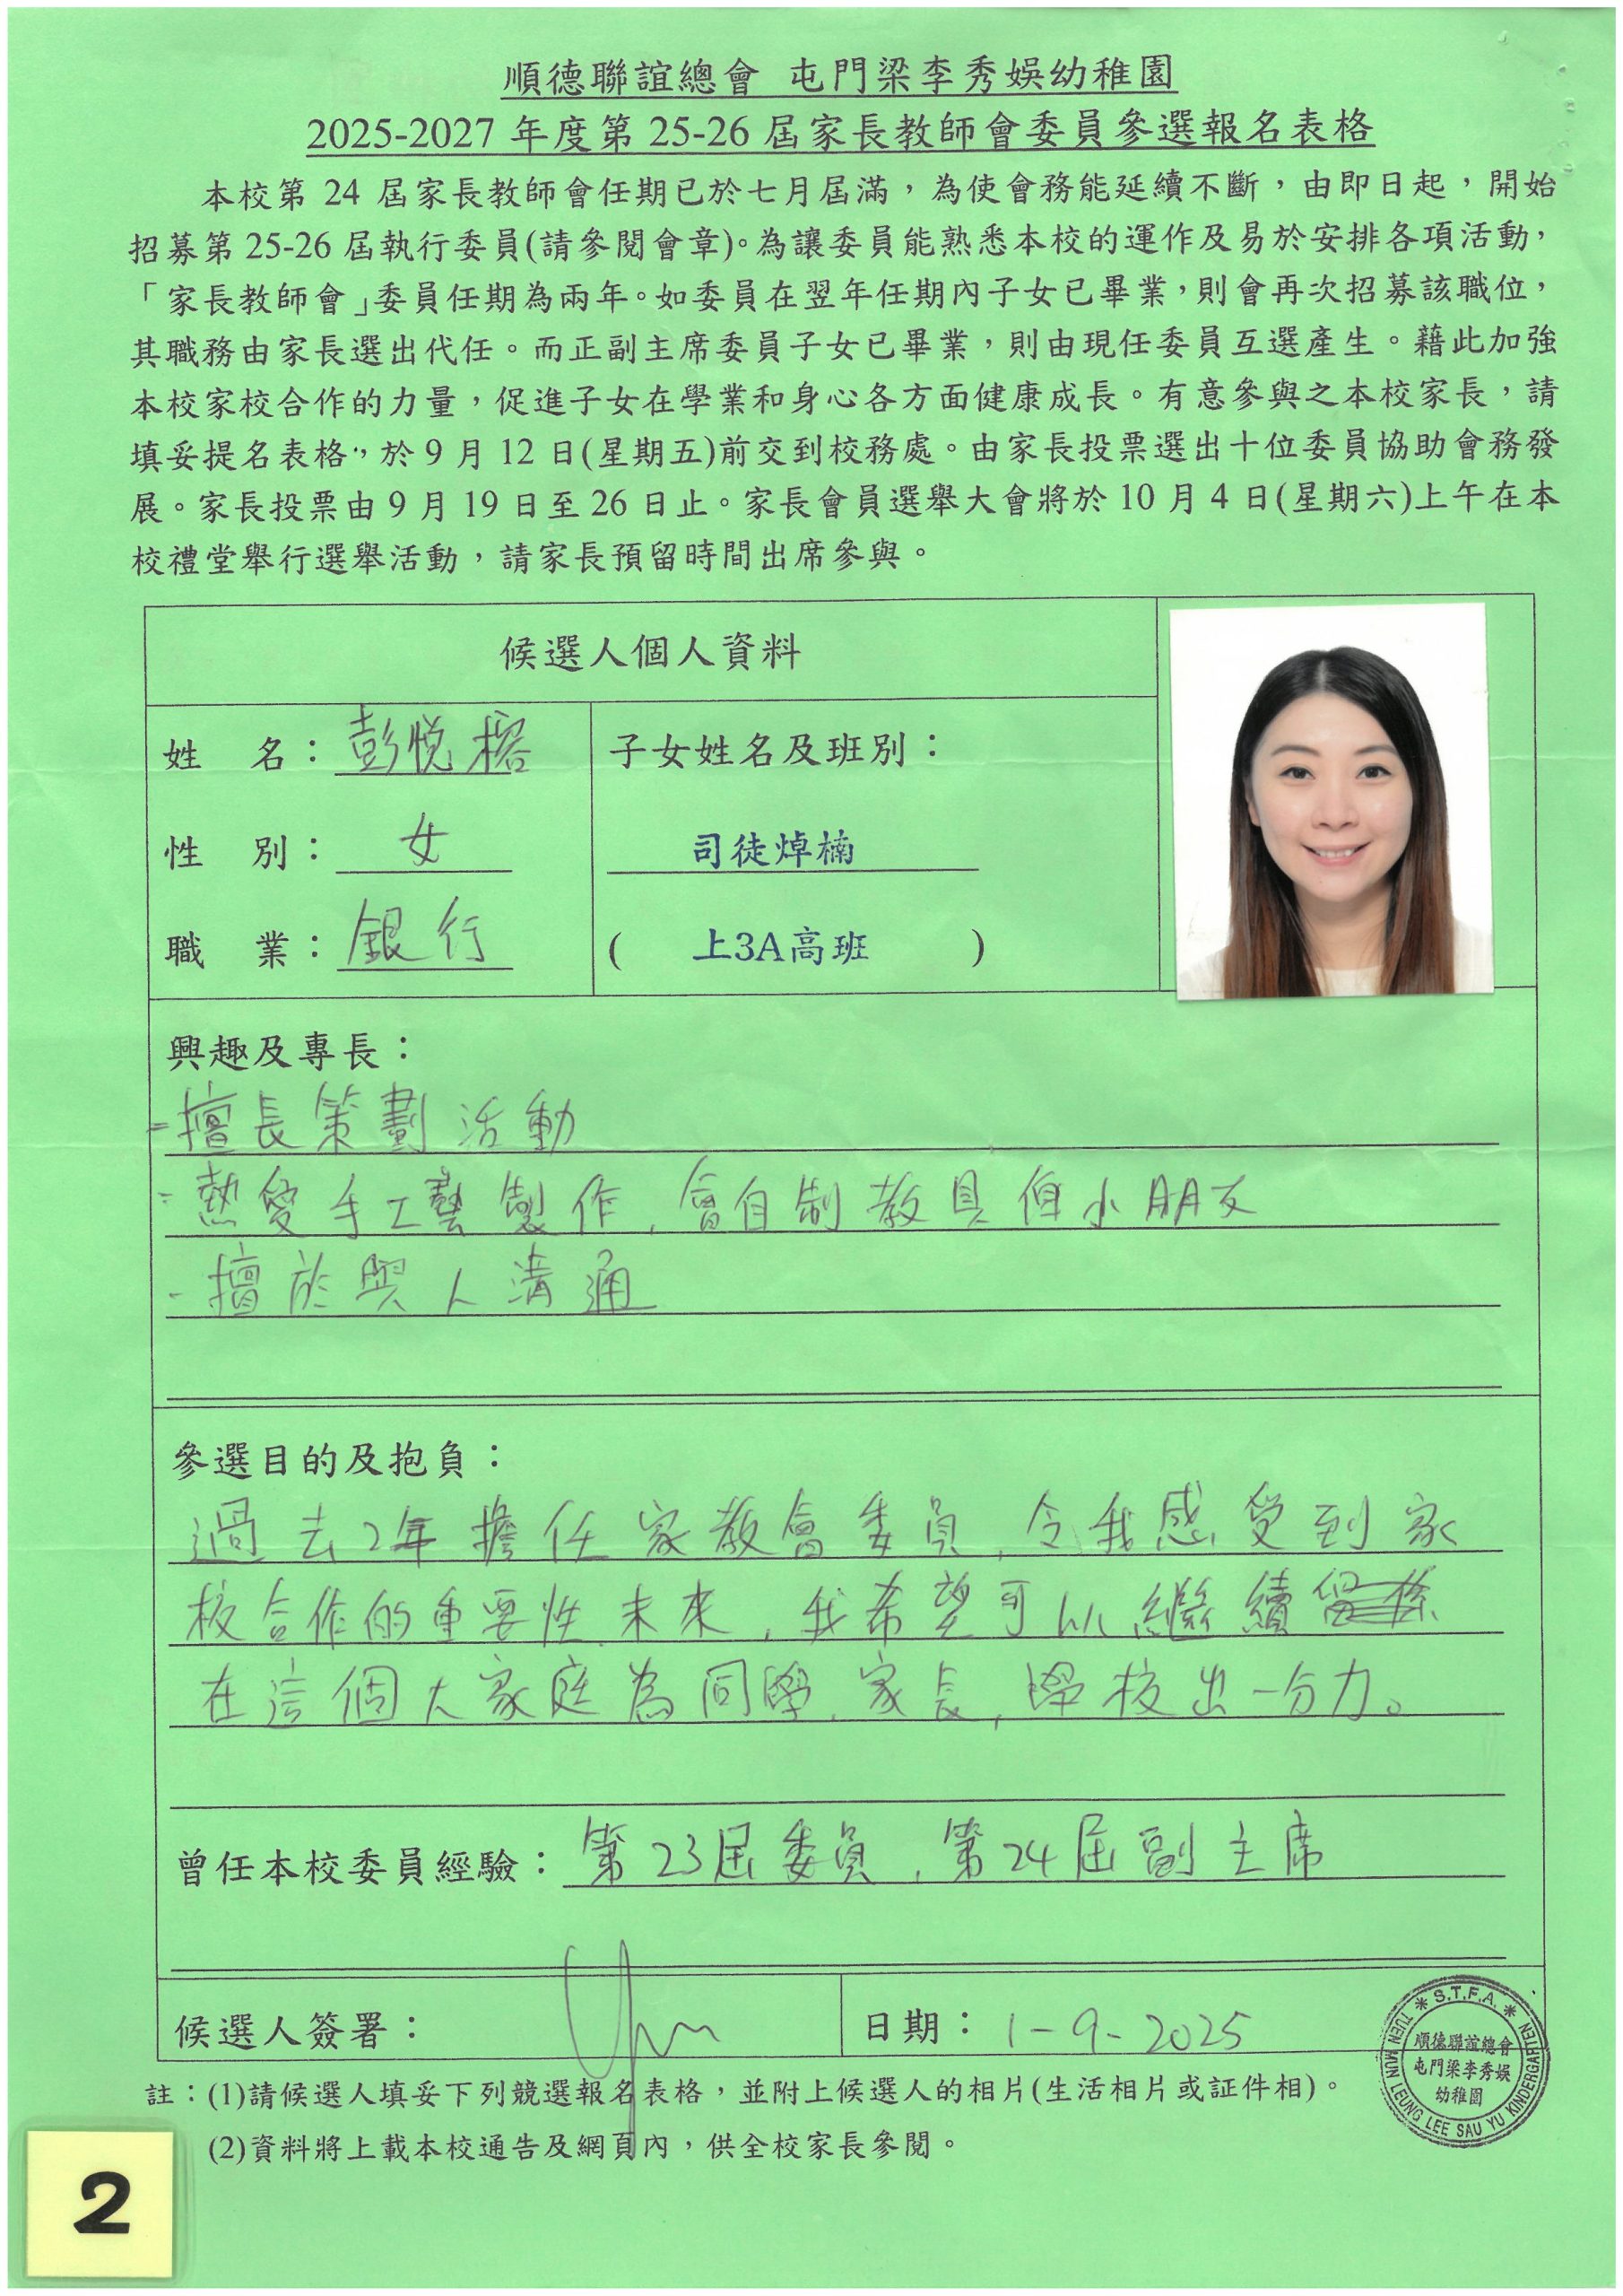 順德聯誼總會 屯門梁李秀娛幼稚園
2025-2027 年度第 25-26 屆家長教師會委員參選報名表格
本校第 24 屆家長教師會任期已於七月屆滿，為使會務能延續不斷，由即日起，開始
招募第 25-26 屆執行委員(請參閱會章)。為讓委員能熟悉本校的運作及易於安排各項活動，
「家長教師會」委員任期為兩年。如委員在翌年任期內子女已畢業，則會再次招募該職位，
其職務由家長選出代任。而正副主席委員子女已畢業，則由現任委員互選產生。藉此加強
本校家校合作的力量，促進子女在學業和身心各方面健康成長。有意參與之本校家長，請
填妥提名表格，於 9 月 12 日(星期五)前交到校務處。由家長投票選出十位委員協助會務發
展。家長投票由 9 月 19 日至 26 日止。家長會員選舉大會將於 10 月 4 日(星期六)上午在本
校禮堂舉行選舉活動，請家長預留時間出席參與。
候選人個人資料
姓 名：彭悅榕
子女姓名及班別：
性 別：女
司徒焯楠
職 業：銀行
( 上3A高班 )
興趣及專長：
-擅長策劃活動
-熱愛手工藝製作，會自制教具俾小朋友
-擅於與人溝通
參選目的及抱負：
過去2年擔任家教會委員，令我感受到家
校合作的重要性.未來，我希望可以繼續
在這個大家庭為同學、家長，學校出一分力。
曾任本校委員經驗：第23屆委員，第24屆副主席
候選人簽署：
日期：1-9-2025
註：(1)請候選人填妥下列競選報名表格，並附上候選人的相片(生活相片或証件相)。
(2)資料將上載本校通告及網頁內，供全校家長參閱。
* S.T.F.A. *
TUEN MUN LEUNG LEE SAU YU KINDERGARTEN
順德聯誼總會
屯門梁李秀娛
幼稚園
2